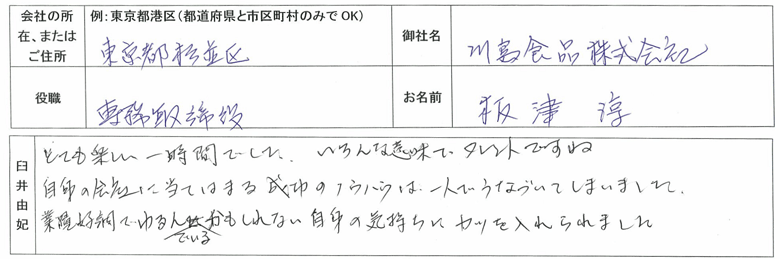 会社の所在、またはご住所
例：東京都港区（都道府県と市区町村のみでOK）
東京都杉並区
御社名
川島食品株式会社
役職
専務取締役
お名前
板津 淳
臼井由妃
とても楽しい一時間でした．いろんな意味で、タレントですね
自身の会社に当てはまる成功のノウハウは、一人でうなづいてしまいました．
業績好調でゆるん
でいる
かもしれない自身の気持ちにカツを入れられました